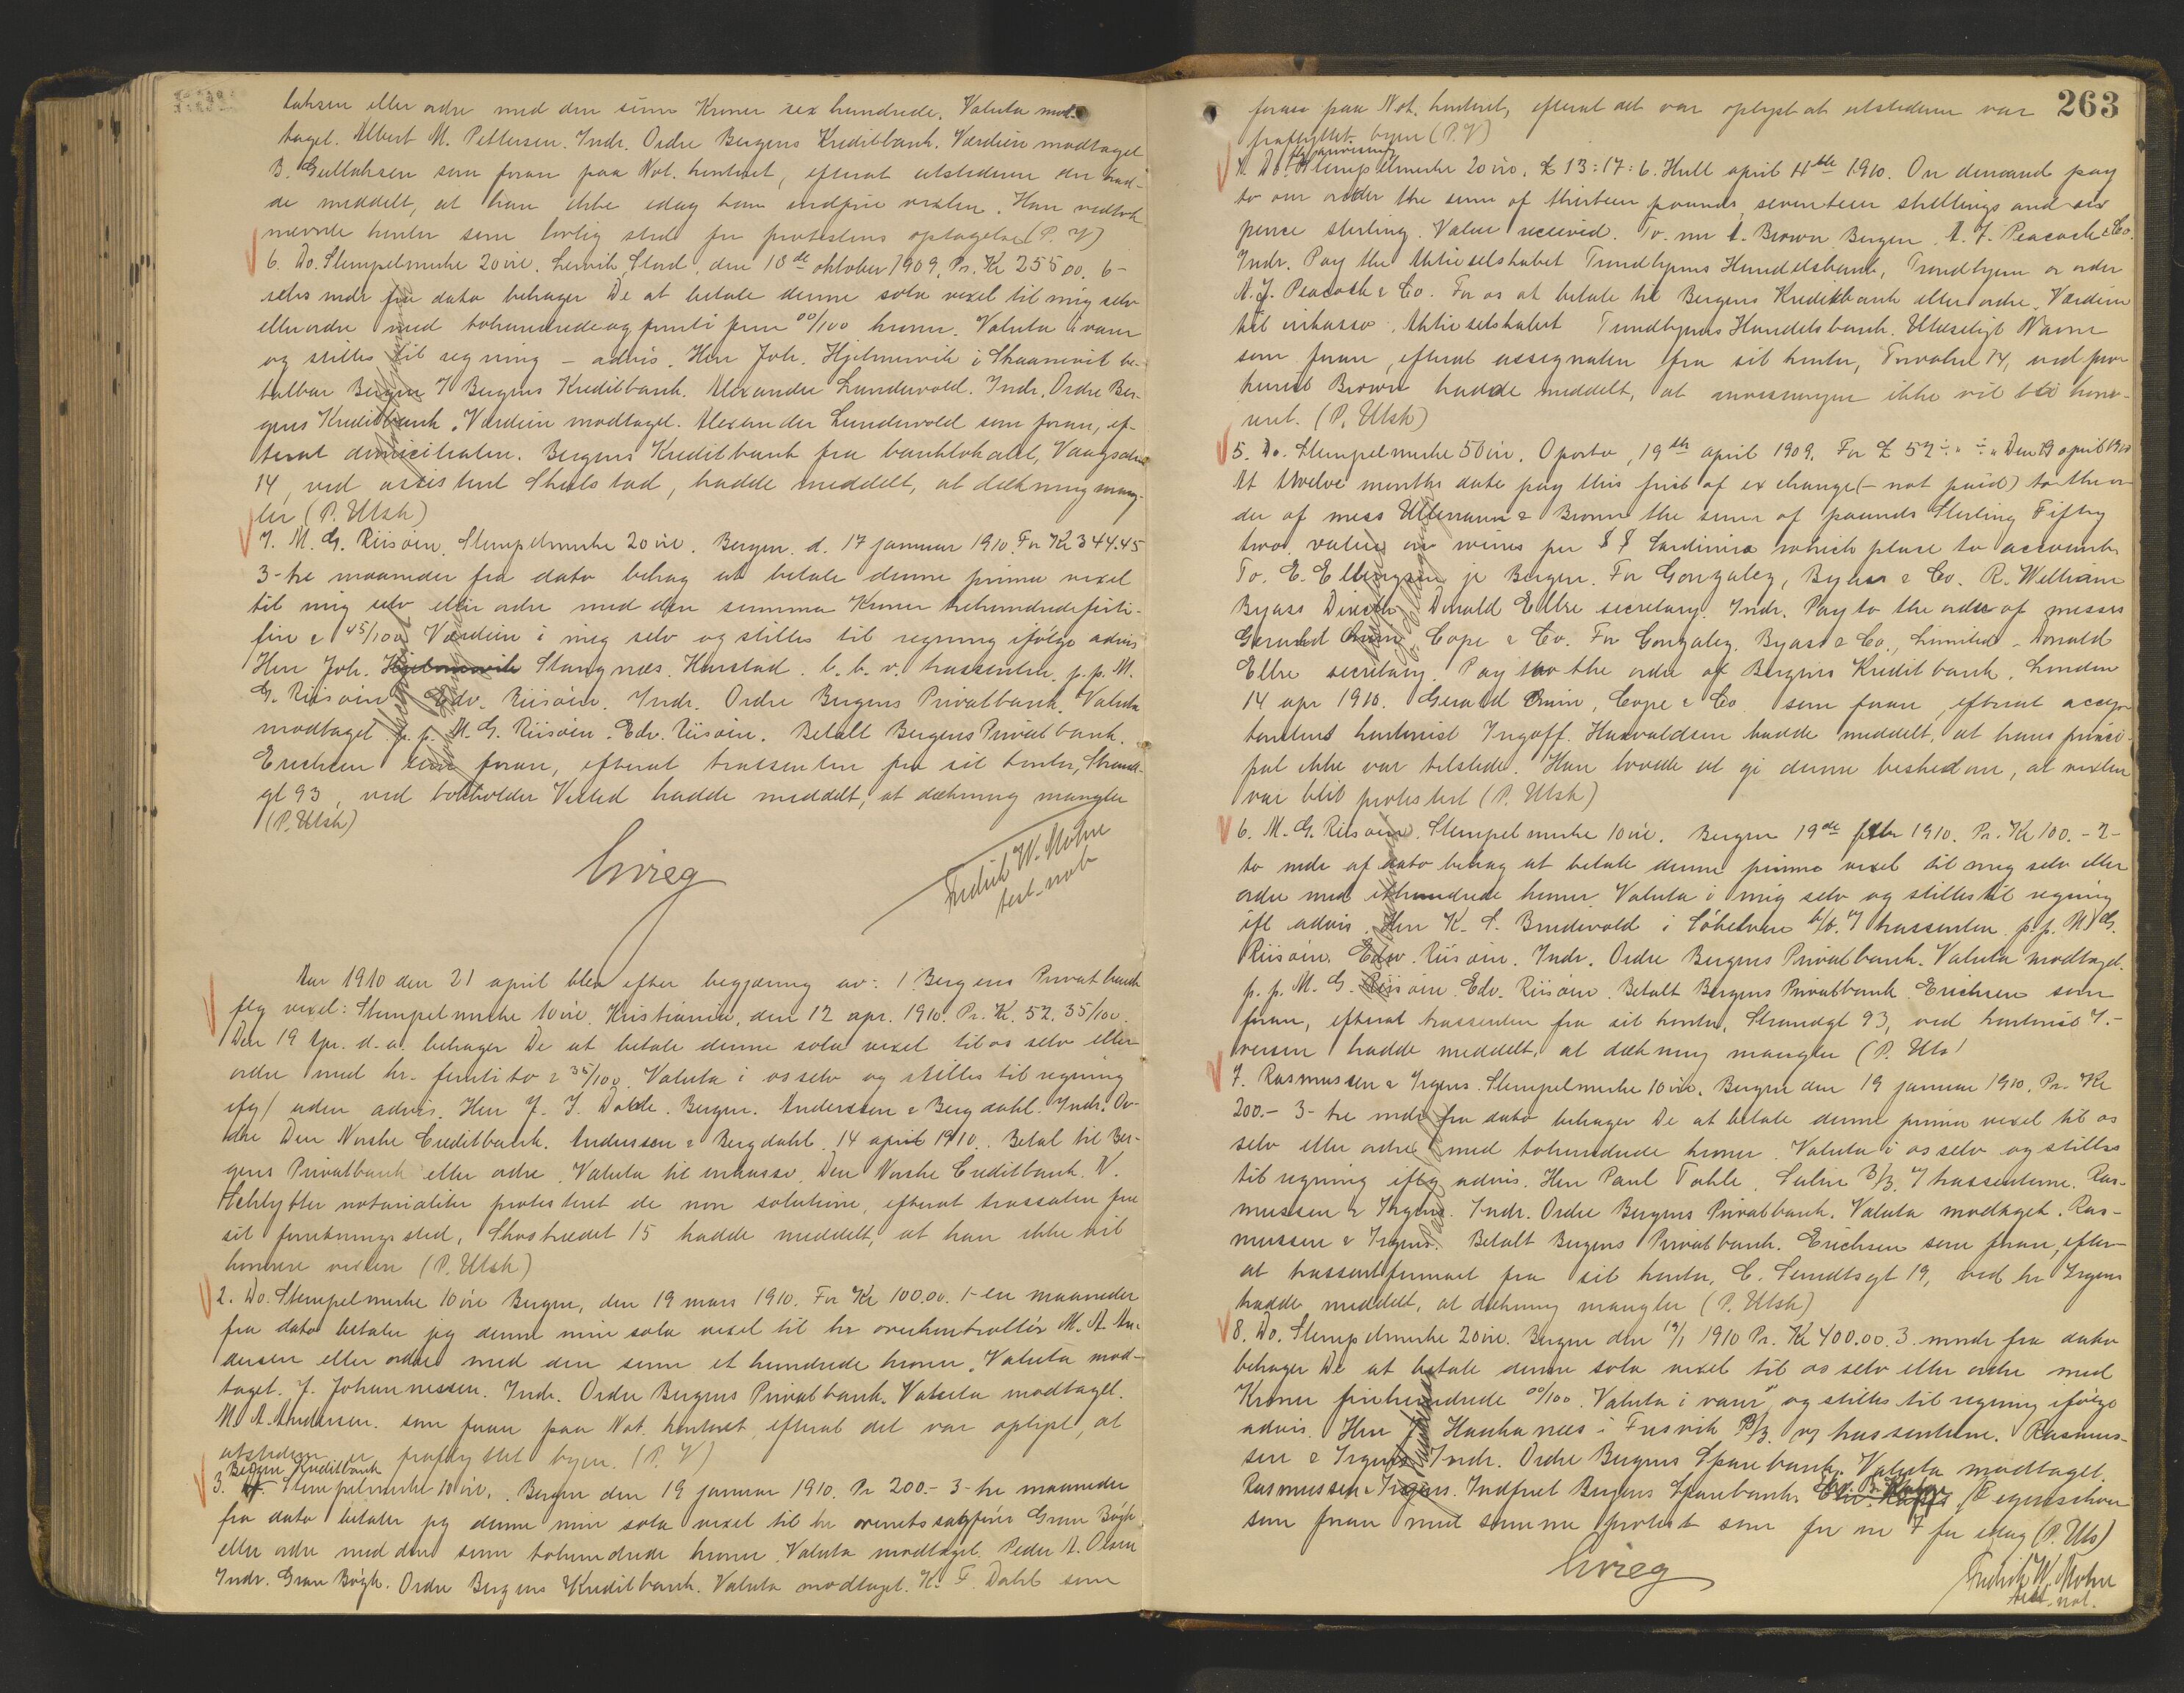 taksen eller ordre med den sum Kroner sex hundrede. Valuta mod-
taget. Albert M. Pettersen. Indr. Ordre Bergens Kreditbank. Værdien modtaget
B. Gullaksen som foran paa Not. kontoret, efterat utstederen der had-
de meddelt, at han ikke idag kan indfrie vexlen. Han vedtok
nævnte kontor som lovlig sted for protestens optagelse (P. V)
6. Do. Stempelmerke 20 øre. Lervik, Stord, den 18de oktober 1909. Pr. Kr 255 00. 6-
seks mdr fra dato behager De at betale denne sola vexel til mig selv
eller ordre med tohundredeogfemti fem 00/100 kroner. Valuta i varer
og stilles til regning – advis. Herr Joh. Hjelmervik i Skaanevik be-
talbar Bergen i Bergens Kreditbank. Alexander Lundevold. Indr. Ordre Ber-
gens Kreditbank. Værdien modtaget. Alexander Lundevold som foran, ef-
terat domiciliaten. Bergens Kreditbank fra banklokalet, Vaagsalm
14, ved assistent Skulstad, hadde meddelt, at dækning mang-
ler (P. Utsk)
7. M. G. Riisøen. Stempelmerke 20 øre. Bergen. d. 17 januar 1910. For Kr 344.45
3-tre maaneder fra dato behag at betale denne prima vexel
til mig selv eller ordre med den summa Kroner trehundredeførti-
fire & 45/100 Værdien i mig selv og stilles til regning ifølge advis
Herr Joh. Hjelmervik Stangnes. Harstad. b. b. v. trassenten. p. p. M.
G. Riisøen Edv. Riisøen. Indr. Ordre Bergens Privatbank. Valuta
modtaget p. p. M. G. Riisøen. Edv. Riisøen. Betalt Bergens Privatbank.
Erichsen som foran, efterat trassenten fra sit kontor, Strand-
gt 93, ved bokholder Vested hadde meddelt, at dækning mangler
(P. Utsk)
Grieg
Fredrik W. Mohn
test. not
Aar 1910 den 21 april blev efter begjæring av: 1. Bergens Privatbank
flg vexel: Stempelmerke 10 øre. Kristiania, den 12 apr. 1910. Pr. K. 52. 35/100.
Den 19 Apr. d. a. behager De at betale denne sola vexel til os selv eller
ordre med kr. femti to & 35/100. Valuta i os selv og stilles til regning
ifg/ uden advis. Herr J. J. Dolde. Bergen. Anderssen & Bergdahl. Indr. Or-
dre Den Norske Creditbank. Anderssen & Bergdahl. 14 april 1910. Betal til Ber-
gens Privatbank eller ordre. Valuta til inkasso. Den Norske Creditbank. N.
Schlytter notarialiter protesteret de non solutione, efterat trassaten fra
sit forretningssted, Skostrædet 15 hadde meddelt, at han ikke vil
honorere vexlen (P. Utsk)
2. Do. Stempelmerke 10 øre Bergen, den 19 mars 1910. For Kr 100.00. 1-en maaneder
fra dato betaler jeg denne min sola vexel til hr overkontrollør M. A. An-
dersen eller ordre med den sum et hundrede kroner. Valuta mod-
taget. J. Johannessen. Indr. Ordre Bergens Privatbank. Valuta modtaget.
M. A. Andersen. som foran paa Not. kontoret efterat det var oplyst, at
utstederen er fraflyttet byen. (P. V)
Bergens Kreditbank
3. Stempelmerke 10 øre. Bergen den 19 januar 1910. Pr 200.- 3-tre maaneder
fra dato betaler jeg denne min sola vexel til hr overretssagfører Gran Bøgh
eller ordre med den sum tohundrede kroner. Valuta modtaget. Peder A. Olsen
Indr. Gran Bøgh. Ordre Bergens Kreditbank. Valuta modtaget. K. F. Dahl som
263
foran paa Not. kontoret, efterat det var oplyst at utstederen var
fraflyttet byen (P. V)
anvisning
4. Do. Stempelmerke 20 øre. £ 13:17:6. Hull april 4th 1910. On demand pay
to our order the sum of thirteen pounds seventeen shillings and six
pence sterling. Value received. To. mr A. Brown Bergen. A. J. Peacock & Co.
Indr. Pay the Aktieselskabet Trondhjems Handelsbank, Trondhjem or order
A. J. Peacock & Co. For os at betale til Bergens Kreditbank eller ordre. Værdien
til inkasso. Aktieselskabet Trondhjems Handelsbank. Ulæseligt Navn
som foran, efterat assignaten fra sit kontor, Torvalm 14, ved pro-
kurist Brown hadde meddelt, at anvisningen ikke vil bli hono-
rert. (P. Utsk)
5. Do. Stempelmerke 50 øre. Oporto, 19th april 1909. For £ 52 ÷ " ÷ " Den 19 april 1910
At twelve months date pay this first of exchange (– not paid) to the or-
der of mess Ullmann & Brown the sum of pounds Sterling Fifty
two. value in wines per S S Sardinia which place to account
To. E. Ellingsen jr Bergen. For Gonzalez, Byass & Co. R. William
Byass Director Donald Ellre secretary. Indr. Pay to the order of messrs
Gerard Cope & Co. For Gonzalez. Byass & Co., Limited – Donald
Ellre secretary. Pay to the order of Bergens Kreditbank. London
14 apr 1910. Gerard Cope & Co. som foran, efterat accep-
tantens kontorist Ingolf. Harvaldsen hadde meddelt, at hans princi-
pal ikke var tilstede. Han lovde at gi denne beskjed om, at vexlen
var blit protestert (P. Utsk)
6. M. G. Riisøen. Stempelmerke 10 øre. Bergen 19de febr 1910. Pr. Kr 100. - 2-
to mdr af dato behag at betale denne prima vexel til mig selv eller
ordre med ethundrede kroner. Valuta i mig selv og stilles til regning
ifl advis. Herr K. S. Brudevold i Søholmen b/b. v/ trassenten. p. p. M. G.
Riisøen. Edv. Riisøen. Indr. Ordre Bergens Privatbank. Valuta modtaget.
p. p. M. G. Riisøen. Edv. Riisøen. Betalt Bergens Privatbank. Erichsen som
foran, efterat trassenten fra sit kontor, Strandgt 93, ved kontorist I.-
versen hadde meddelt, at dækning mangler (P. Uts)
7. Rasmussen & Irgens. Stempelmerke 10 øre. Bergen den 19 januar 1910. Pr. Kr
200.- 3-tre mdr fra dato behager De at betale denne prima vexel til os
selv eller ordre med tohundrede kroner. Valuta i os selv og stilles
til regning iflg advis. Herr Paul Tahle. B/B. v/ trassenterne. Ras-
mussen & Irgens. Indr. Ordre Bergens Privatbank. Valuta modtaget. Ras-
mussen & Irgens. Betalt Bergens Privatbank. Erichsen som foran, efter-
at trassentfirmaet fra sit kontor, C. Sundtsgt 19, ved hr Irgens
hadde meddelt, at dækning mangler (P. Utsk)
8. Do. Stempelmerke 20 øre. Bergen den 19/1 1910 Pr. Kr 400.00. 3. mndr fra dato
behager De at betale denne sola vexel til os selv eller ordre med
Kroner firehundrede 00/100. Valuta i varer, og stilles til regning ifølge
advis. Herr Haukanæs i Fusvik B/B. v/ trassenterne. Rasmus-
sen & Irgens. Indr. Ordre Bergens Sparebank. Valuta modtaget.
Rasmussen & Irgens. Indfriet Bergens Sparebank.
som foran med samme protest som for nr 7 for idag (P. Uts)
Grieg
Fredrik W. Mohn
test. not.